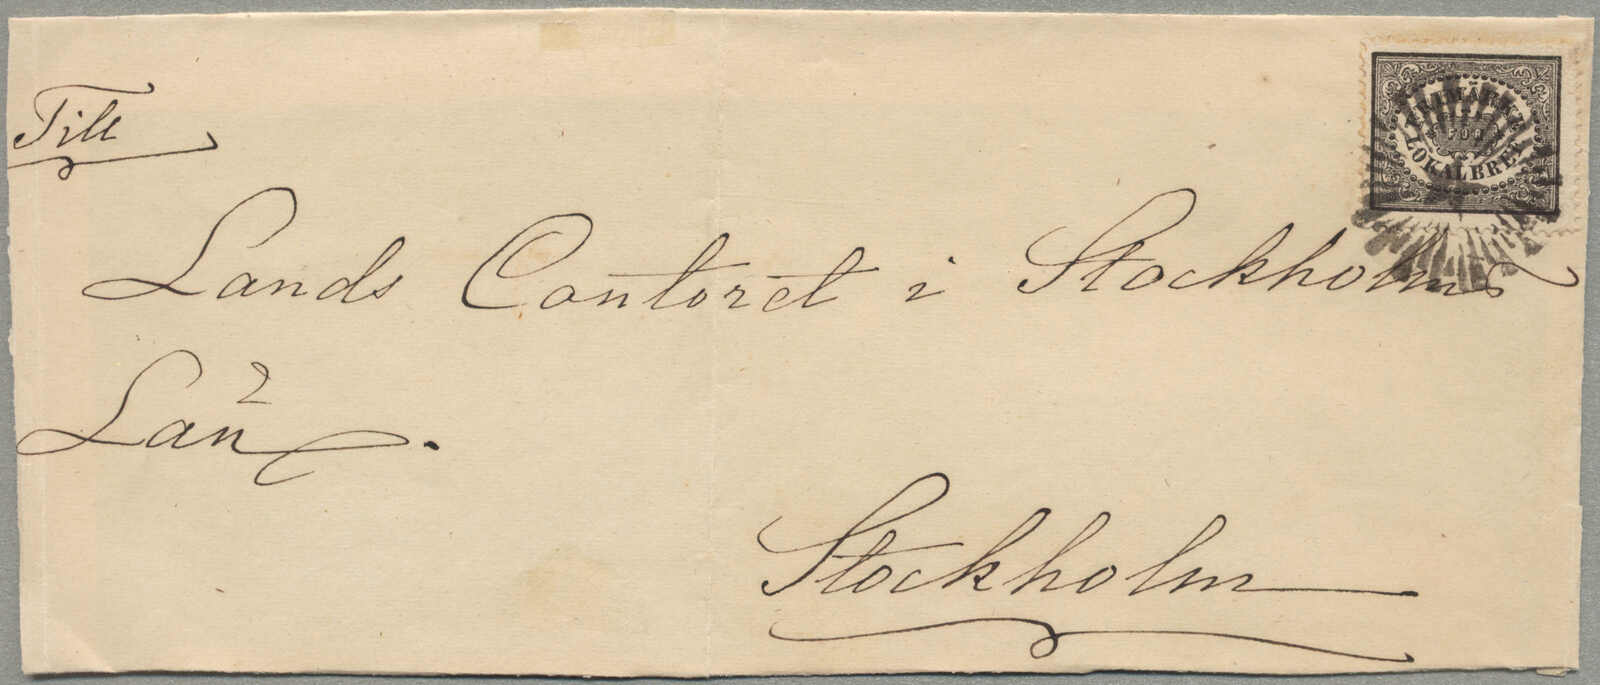 FRIMÄRKE
FÖR
LOKALBREF
Till
Lands Contoret i Stockholms
Län.
Stockholm